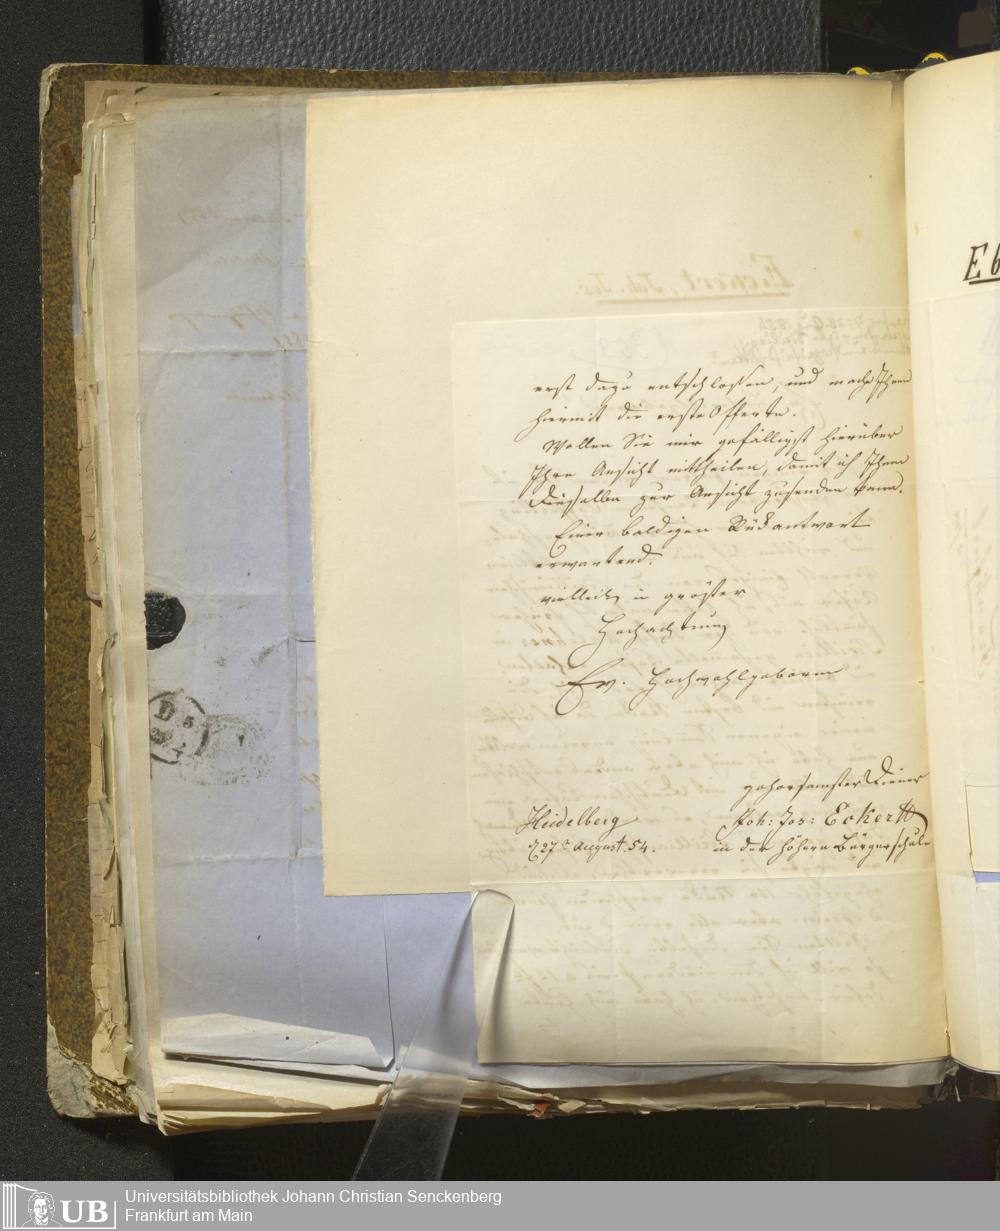 erst dazu entschlossen, und mache Ihnen
hiermit die erste Offerte.
Wollen Sie mir gefälligst hierüber
Ihre Ansicht mittheilen, damit ich Ihnen
dieselbe zur Ansicht zusenden kann.
Einer baldigen Rückantwort
erwartend.
in größter
Hochachtung
Ew. Hochwohlgeboren
gehorsamster Diener
Heidelberg
Joh: Jos: Eckert
27t August 54.
in der höhern Bürgerschule
E b
Universitätsbibliothek Johann Christian Senckenberg
Frankfurt am Main
UB